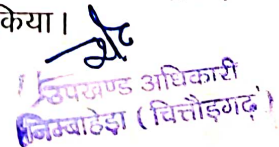 किया।
उपखण्ड अधिकारी
निम्बाहेड़ा (चित्तौड़गढ़)